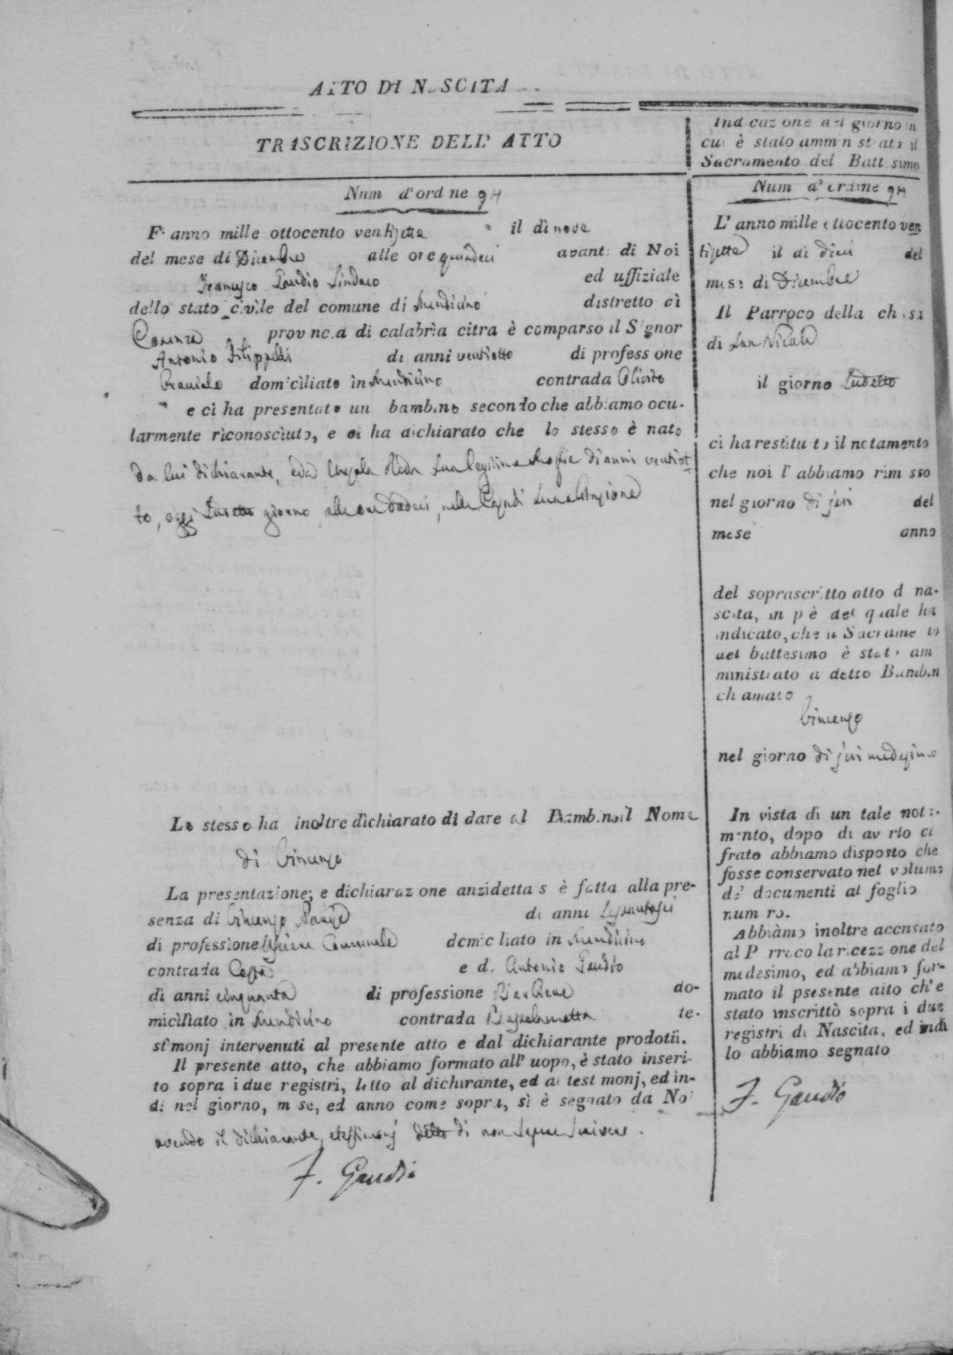 ATTO DI NASCITA
TRASCRIZIONE DELL' ATTO
Num d'ordine 94
L' anno mille ottocento ventisette il dì nove
del mese di Dicembre alle ore quindeci avanti di Noi
Francesco Gaudio Sindaco ed uffiziale
dello stato civile del comune di Mendicino distretto di
Cosenza provincia di calabria citra è comparso il Signor
Antonio Filippelli di anni ventiotto di professione
domiciliato in Mendicino contrada Oliveto
e ci ha presentato un bambino secondo che abbiamo ocu-
larmente riconosciuto, e ci ha dichiarato che lo stesso è nato
da lui dichiarante, ed Sua legitima Moglie di anni ventiot
to, oggi sudetto giorno, alle ore dodeci, nella Sua abitazione
Lo stesso ha inoltre dichiarato di dare al Bambino il Nome
di Vincenzo
La presentazione, e dichiarazione anzidetta s è fatta alla pre-
senza di Vincenzo di anni
di professione Comunale domiciliato in Mendicino
contrada e d. Antonio Gaudio
di anni cinquanta di professione do-
miciliato in Mendicino contrada te-
stimonj intervenuti al presente atto e dal dichiarante prodotti.
Il presente atto, che abbiamo formato all' uopo, è stato inseri-
to sopra i due registri, letto al dichirante, ed ai testimonj, ed in-
di nel giorno, mese, ed anno come sopra, si è segnato da Noi
avendo il dichiarante, e testimonj detto di non sapere scrivere.
F. Gaudio
Indicazione del giorno in
cui è stato amministrato il
Sacramento del Battesimo
Num d' ordine 94
L' anno mille ottocento ven
tisette il dì dieci del
mese di Dicembre
Il Parroco della chiesa
di San Nicola
il giorno sudetto
ci ha restituito il notamento
che noi l' abbiamo rimesso
nel giorno di jeri del
mese anno
del soprascritto atto di na-
scita, in piè del quale ha
indicato, che il Sacramento
del battesimo è stato am
ministrato a detto Bambin
chiamato
Vincenzo
nel giorno di jeri medesimo
In vista di un tale nota-
mento, dopo di averlo ci
frato abbiamo disposto che
fosse conservato nel volume
de' documenti al foglio
numero.
Abbiamo inoltre accusato
al Parroco la ricezzione del
medesimo, ed abbiamo for-
mato il presente atto ch'è
stato inscritto sopra i due
registri di Nascita, ed indi
lo abbiamo segnato
F. Gaudio